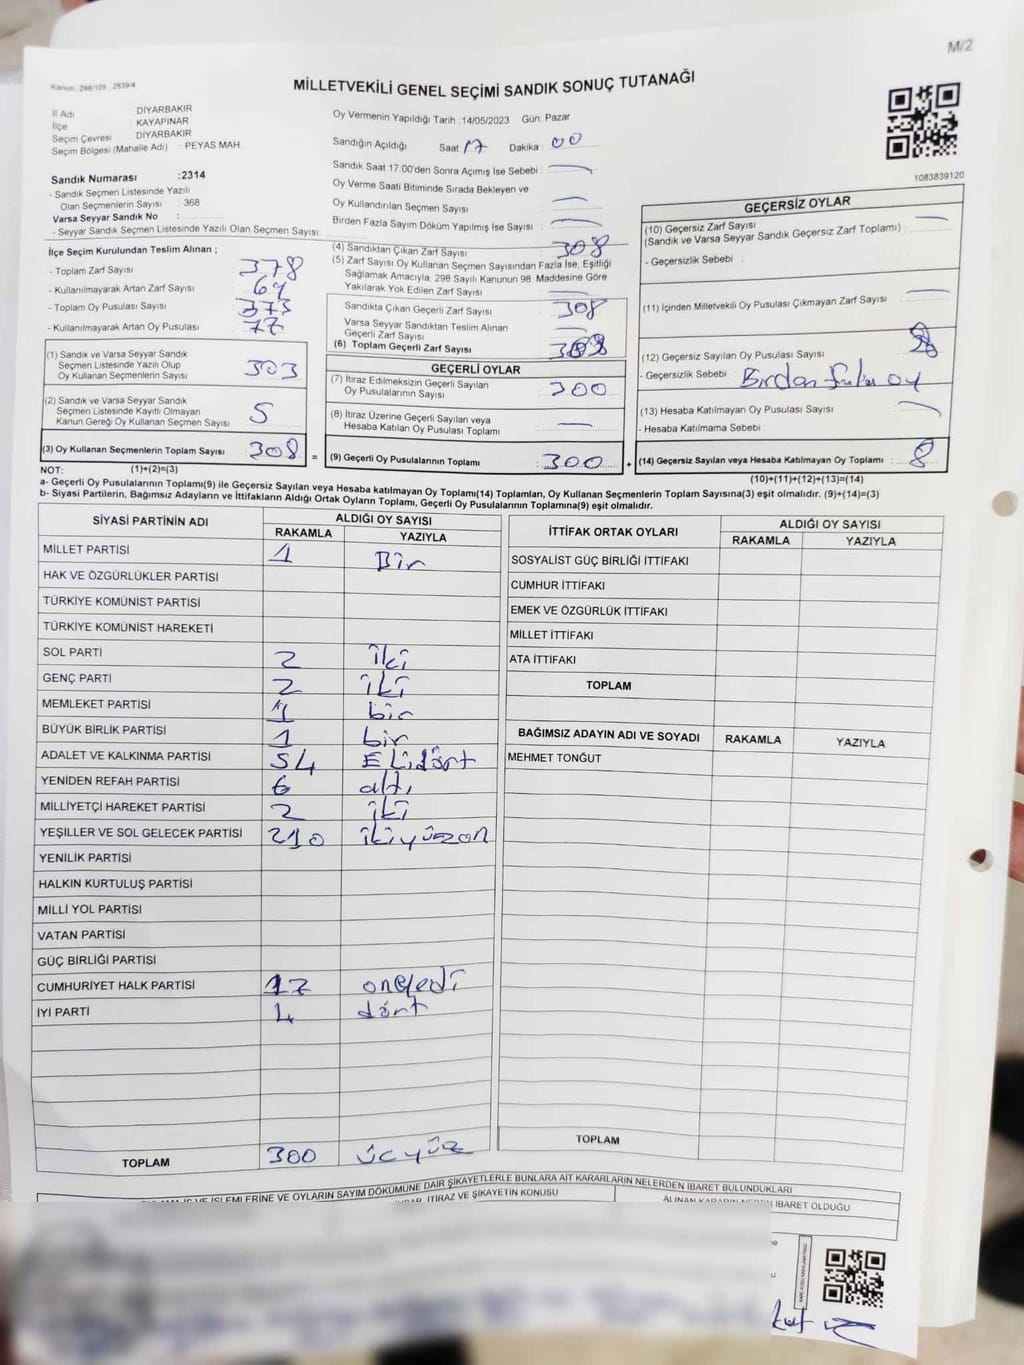 M/2
Kanun: 298/105 , 2839/4
MİLLETVEKİLİ GENEL SEÇİMİ SANDIK SONUÇ TUTANAĞI
İl Adı : DİYARBAKIR
İlçe : KAYAPINAR
Seçim Çevresi : DİYARBAKIR
Seçim Bölgesi (Mahalle Adı) : PEYAS MAH.
Sandık Numarası :2314
- Sandık Seçmen Listesinde Yazılı
Olan Seçmenlerin Sayısı : 368
Varsa Seyyar Sandık No :
- Seyyar Sandık Seçmen Listesinde Yazılı Olan Seçmen Sayısı:
Oy Vermenin Yapıldığı Tarih :14/05/2023 Gün: Pazar
Sandığın Açıldığı Saat: 17 Dakika: 00
Sandık Saat 17:00'den Sonra Açımış İse Sebebi :
Oy Verme Saati Bitiminde Sırada Bekleyen ve
Oy Kullandırılan Seçmen Sayısı :
Birden Fazla Sayım Döküm Yapılmış İse Sayısı :
1083839120
İlçe Seçim Kurulundan Teslim Alınan ;
- Toplam Zarf Sayısı : 378
- Kullanılmayarak Artan Zarf Sayısı :
- Toplam Oy Pusulası Sayısı :
- Kullanılmayarak Artan Oy Pusulası : 77
(1) Sandık ve Varsa Seyyar Sandık
Seçmen Listesinde Yazılı Olup
Oy Kullanan Seçmenlerin Sayısı : 303
(2) Sandık ve Varsa Seyyar Sandık
Seçmen Listesinde Kayıtlı Olmayan
Kanun Gereği Oy Kullanan Seçmen Sayısı : 5
(3) Oy Kullanan Seçmenlerin Toplam Sayısı : 308 =
(4) Sandıktan Çıkan Zarf Sayısı : 308
(5) Zarf Sayısı Oy Kullanan Seçmen Sayısından Fazla İse, Eşitliği
Sağlamak Amacıyla, 298 Sayılı Kanunun 98. Maddesine Göre
Yakılarak Yok Edilen Zarf Sayısı :
Sandıkta Çıkan Geçerli Zarf Sayısı : 308
Varsa Seyyar Sandıktan Teslim Alınan
Geçerli Zarf Sayısı :
(6) Toplam Geçerli Zarf Sayısı :
GEÇERLİ OYLAR
(7) İtiraz Edilmeksizin Geçerli Sayılan
Oy Pusulalarının Sayısı : 300
(8) İtiraz Üzerine Geçerli Sayılan veya
Hesaba Katılan Oy Pusulası Toplamı :
(9) Geçerli Oy Pusulalarının Toplamı : 300 +
GEÇERSİZ OYLAR
(10) Geçersiz Zarf Sayısı
(Sandık ve Varsa Seyyar Sandık Geçersiz Zarf Toplamı) :
- Geçersizlik Sebebi :
(11) İçinden Milletvekili Oy Pusulası Çıkmayan Zarf Sayısı :
(12) Geçersiz Sayılan Oy Pusulası Sayısı :
- Geçersizlik Sebebi : Birden fazla oy
(13) Hesaba Katılmayan Oy Pusulası Sayısı :
- Hesaba Katılmama Sebebi :
(14) Geçersiz Sayılan veya Hesaba Katılmayan Oy Toplamı : 8
NOT: (1)+(2)=(3) (10)+(11)+(12)+(13)=(14)
a- Geçerli Oy Pusulalarının Toplamı(9) ile Geçersiz Sayılan veya Hesaba katılmayan Oy Toplamı(14) Toplamları, Oy Kullanan Seçmenlerin Toplam Sayısına(3) eşit olmalıdır. (9)+(14)=(3)
b- Siyasi Partilerin, Bağımsız Adayların ve İttifakların Aldığı Ortak Oyların Toplamı, Geçerli Oy Pusulalarının Toplamına(9) eşit olmalıdır.
SİYASİ PARTİNİN ADI ALDIĞI OY SAYISI
RAKAMLA YAZIYLA
MİLLET PARTİSİ 1 Bir
HAK VE ÖZGÜRLÜKLER PARTİSİ
TÜRKİYE KOMÜNİST PARTİSİ
TÜRKİYE KOMÜNİST HAREKETİ
SOL PARTİ 2 iki
GENÇ PARTİ 2 iki
MEMLEKET PARTİSİ 1 bir
BÜYÜK BİRLİK PARTİSİ 1 bir
ADALET VE KALKINMA PARTİSİ 54 Elidört
YENİDEN REFAH PARTİSİ 6 altı
MİLLİYETÇİ HAREKET PARTİSİ 2 iki
YEŞİLLER VE SOL GELECEK PARTİSİ 210 ikiyüzon
YENİLİK PARTİSİ
HALKIN KURTULUŞ PARTİSİ
MİLLİ YOL PARTİSİ
VATAN PARTİSİ
GÜÇ BİRLİĞİ PARTİSİ
CUMHURİYET HALK PARTİSİ 17 onyedi
İYİ PARTİ 4 dört
TOPLAM 300 üçyüz
İTTİFAK ORTAK OYLARI ALDIĞI OY SAYISI
RAKAMLA YAZIYLA
SOSYALİST GÜÇ BİRLİĞİ İTTİFAKI
CUMHUR İTTİFAKI
EMEK VE ÖZGÜRLÜK İTTİFAKI
MİLLET İTTİFAKI
ATA İTTİFAKI
TOPLAM
BAĞIMSIZ ADAYIN ADI VE SOYADI RAKAMLA YAZIYLA
MEHMET TONĞUT
TOPLAM
İŞLEMLERİNE VE OYLARIN SAYIM DÖKÜMÜNE DAİR ŞİKAYETLERLE BUNLARA AİT KARARLARIN NELERDEN İBARET BULUNDUKLARI
İTİRAZ VE ŞİKAYETİN KONUSU ALINAN KARARIN NEDEN İBARET OLDUĞU